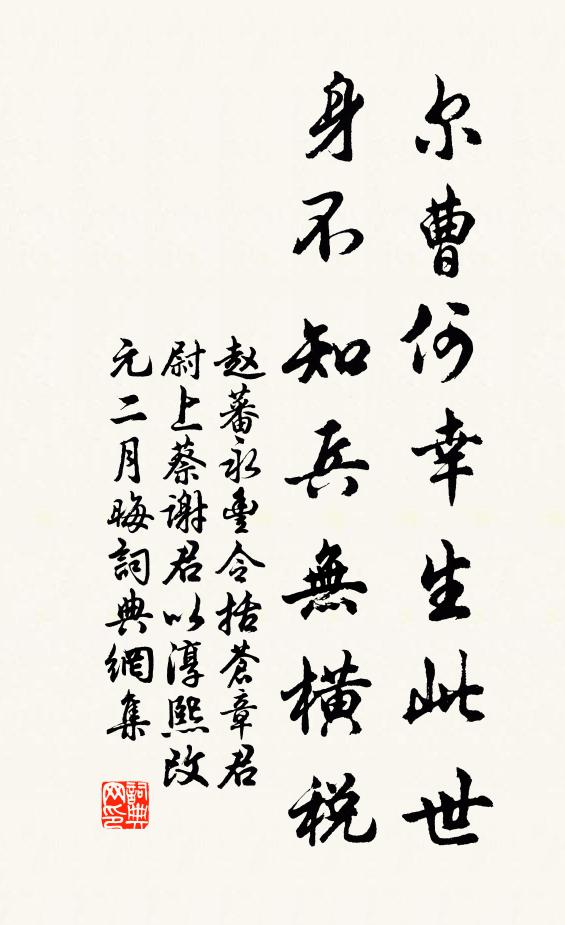 尔曹何幸生此世
身不知兵無橫税
赵蕃永豊令括蒼章君
尉上蔡謝君以淳熙改
元二月晦詞典網集
詞典
网印